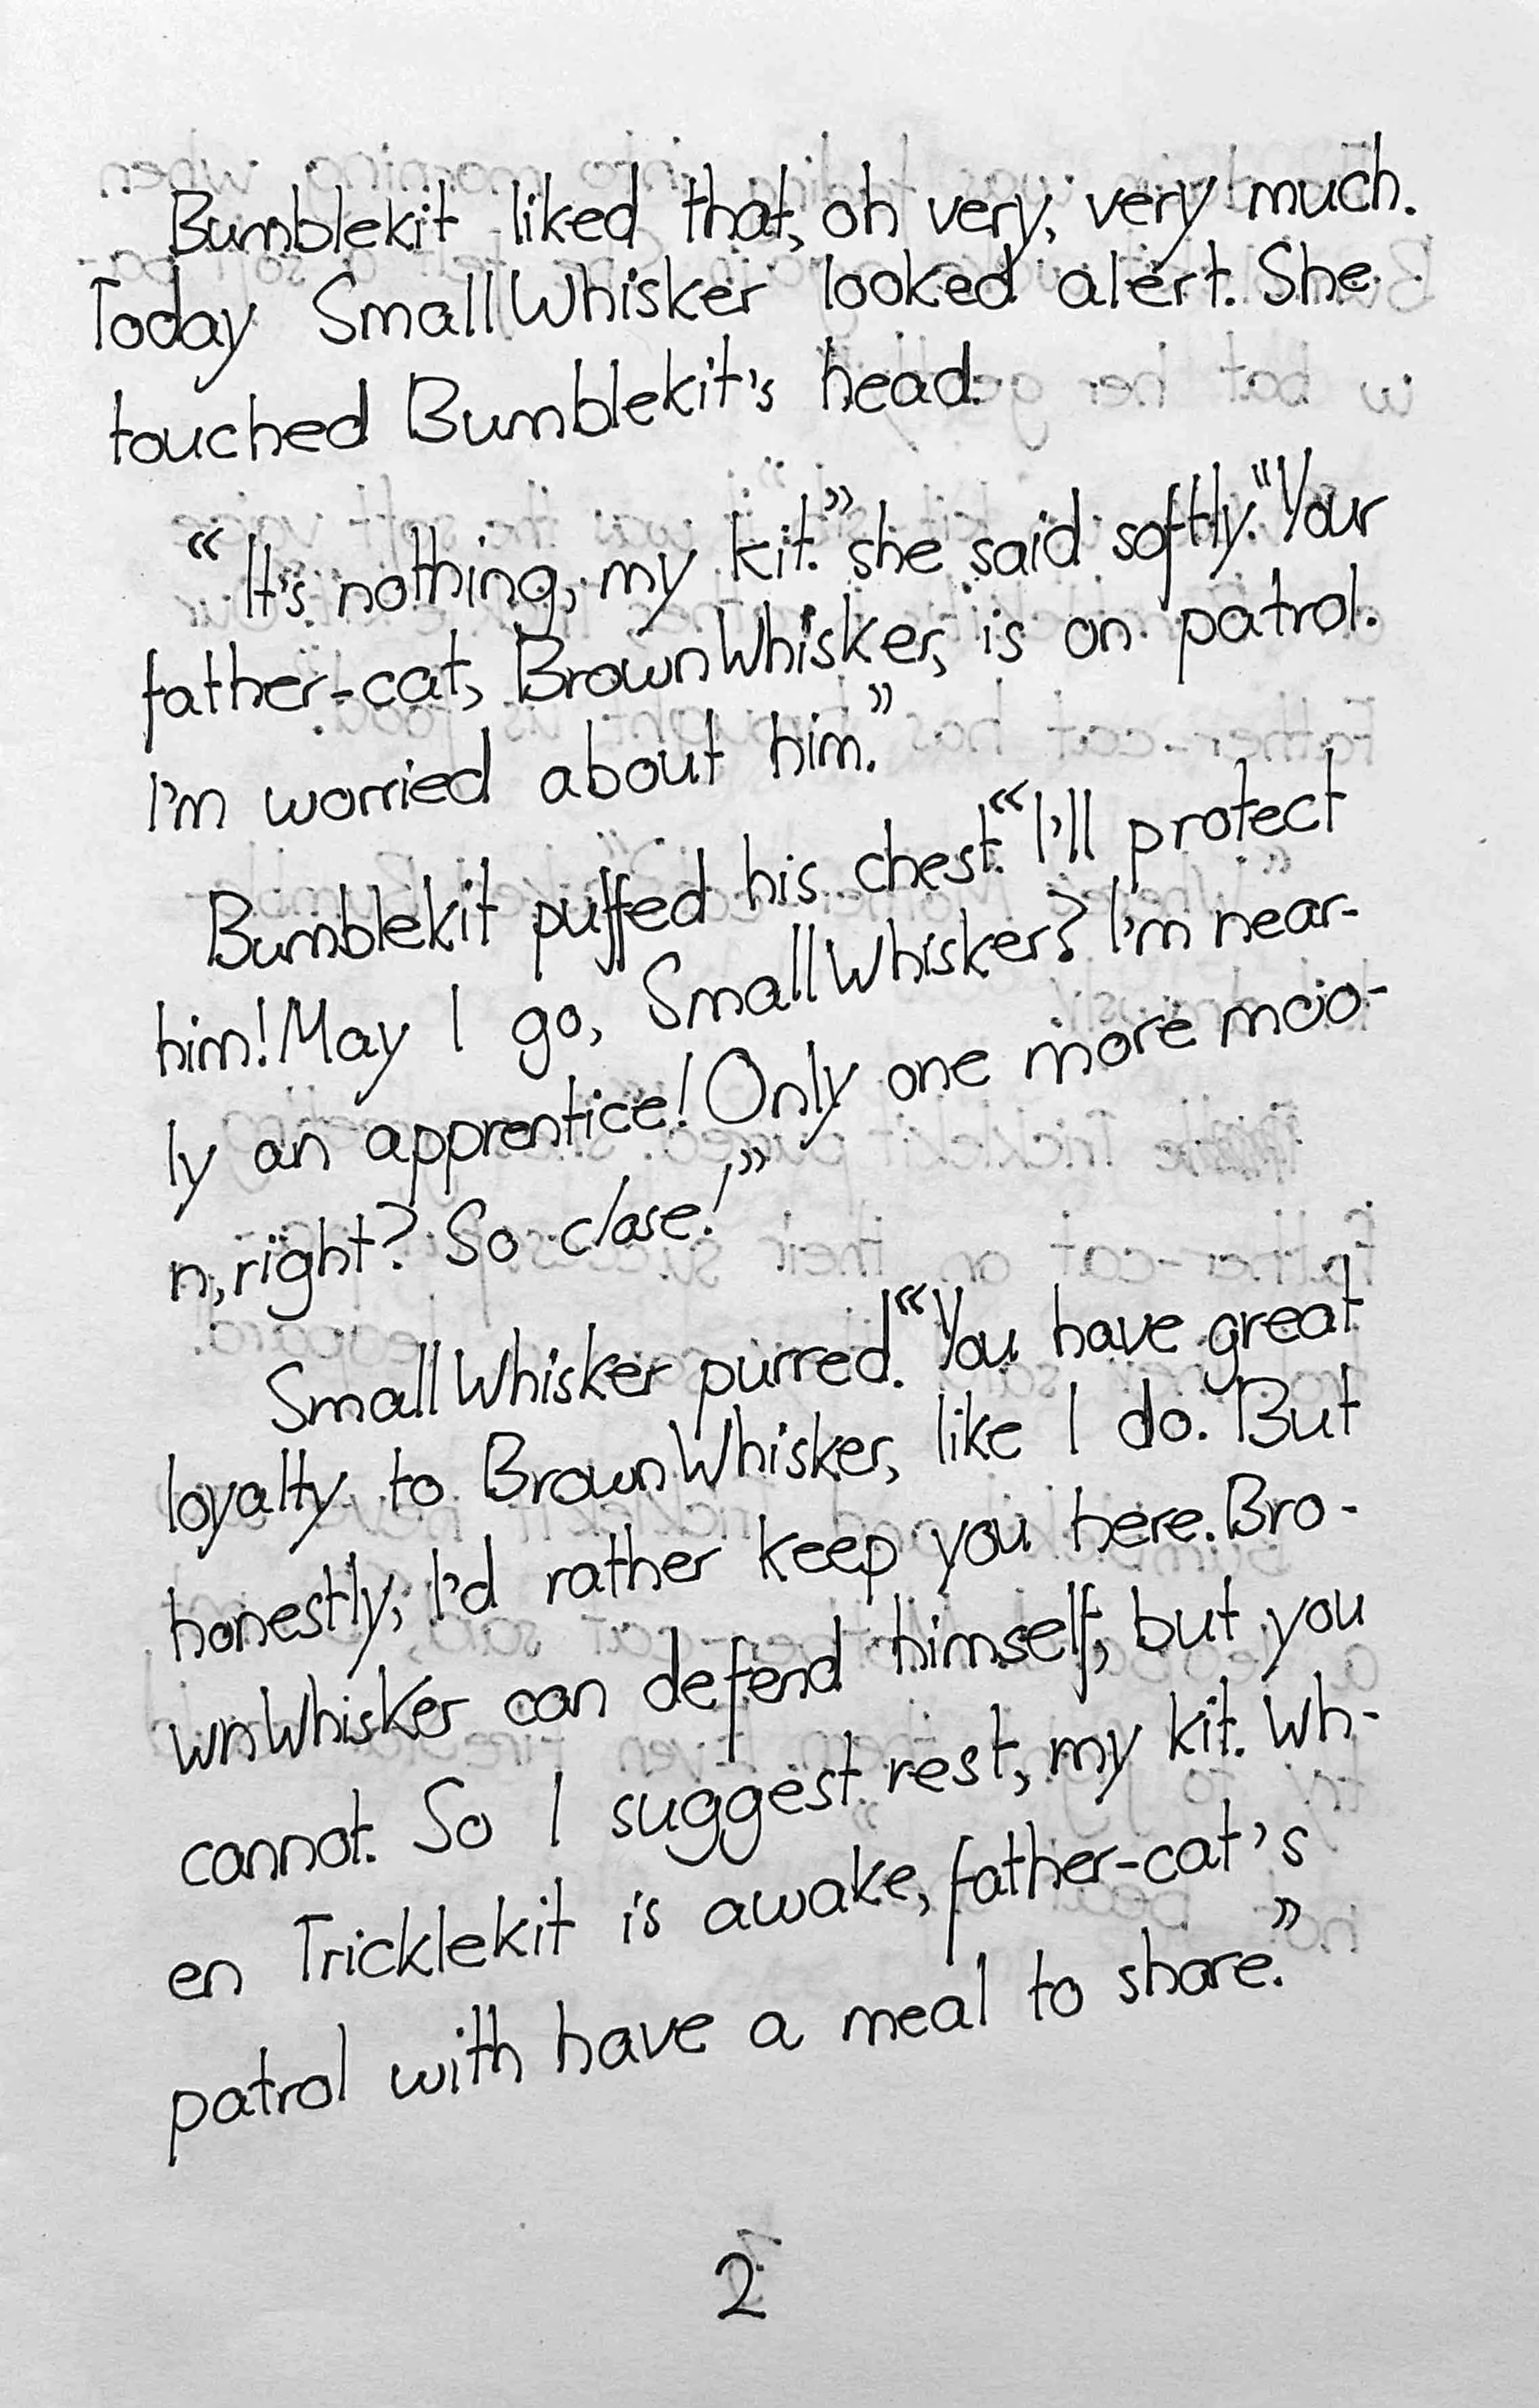 Bumblekit liked that, oh very, very much.
Today SmallWhisker looked alert. She
touched Bumblekit's head.
“It's nothing, my kit.” she said softly. "Your
father-cat, BrownWhisker, is on patrol.
I'm worried about him.”
Bumblekit puffed his chest. “I'll protect
him! May I go, SmallWhisker? I'm near-
ly an apprentice! Only one more moo-
n, right? So close!”
SmallWhisker purred. “You have great
loyalty to BrownWhisker, like I do. But
honestly, I'd rather keep you here. Bro-
wnWhisker can defend himself, but you
cannot. So I suggest rest, my kit. Wh-
en Tricklekit is awake, father-cat's
patrol with have a meal to share.”
2